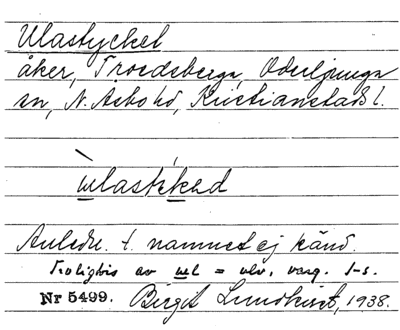 Ulastycket
åker, Troedsberga, Oderljunga
sn, N. Åsbo hd, Kristianstads l.
Anledn. t. namnet ej känd.
Troligtvis av ul = ulv, varg. I-s.
Nr 5499. Birgit Lundkvist, 1938.